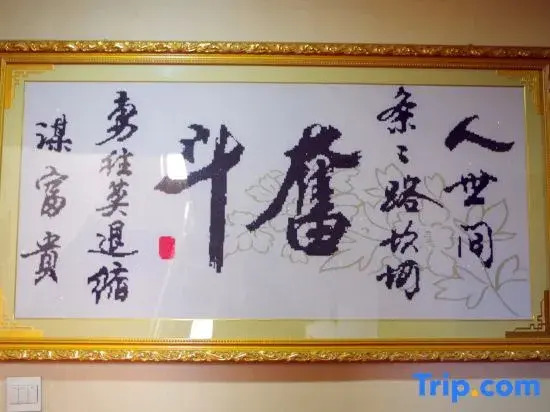 人世间
条々路坎坷
奋斗
勇往莫退缩
谋富贵
Trip.com